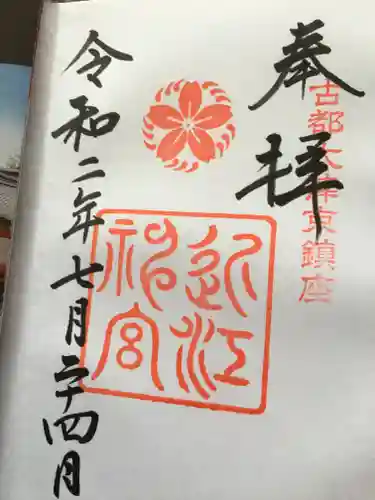 奉拝
古都大津京鎮座
近江神宮
令和二年七月二十四月